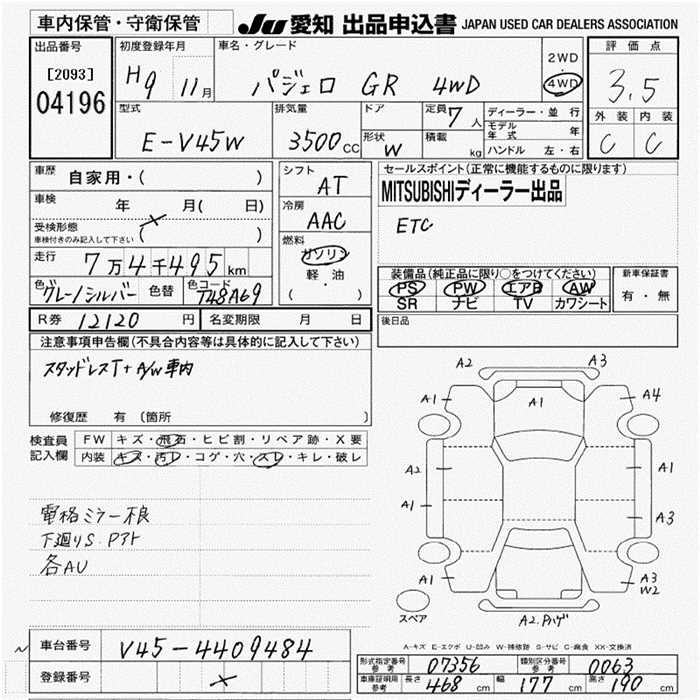 車内保管・守衛保管
JU 愛知 出品申込書 JAPAN USED CAR DEALERS ASSOCIATION
出品番号 初度登録年月 車名・グレード 評価点
[2093] 2WD
04196 H9 11月 パジェロ GR 4WD ・ 4WD 3.5
型式 排気量 ドア 定員 7人 ディーラー・並行 外装 内装
E-V45W 3500cc 形状 W 積載 kg モデル年式 年 C C
ハンドル 左・右
車歴 自家用・( ) シフト AT セールスポイント(正常に機能するものに限ります)
車検 年 月( 日) 冷房 AAC MITSUBISHIディーラー出品
受検形態 ( ) ETC
車検付きのみ記入して下さい
走行 7万4千495km 燃料 ガソリン
軽・油
( )
装備品(純正品に限り○をつけてください) 新車保証書
PS PW エアB AW 有・無
SR ナビ TV カワシート
色 グレー/シルバー 色替 色コード T48A69
R券 12120円 名変期限 月 日 後日品
注意事項申告欄(不具合内容等は具体的に記入して下さい)
スタッドレスT+A/W車内
修復歴 有 (箇所 )
検査員記入欄 FW キズ・飛石・ヒビ割・リペア跡・X要
内装 キズ・汚レ・コゲ・穴・スレ・キレ・破レ
電格ミラー不良
下廻りS.Pアト
各AU
A2 A3
A1 A1 A4
A2 A1
A1 A3
A1 A3
W2
スペア A2.Pハゲ
A-キズ E-エクボ U-凹み W-補修跡 S-サビ C-腐食 XX-交換済
車台番号 V45-4409484
登録番号
形式指定番号 参考 07356 類別区分番号 参考 0063
車庫証明用 参考 長さ 468cm 幅 177cm 高さ 190cm